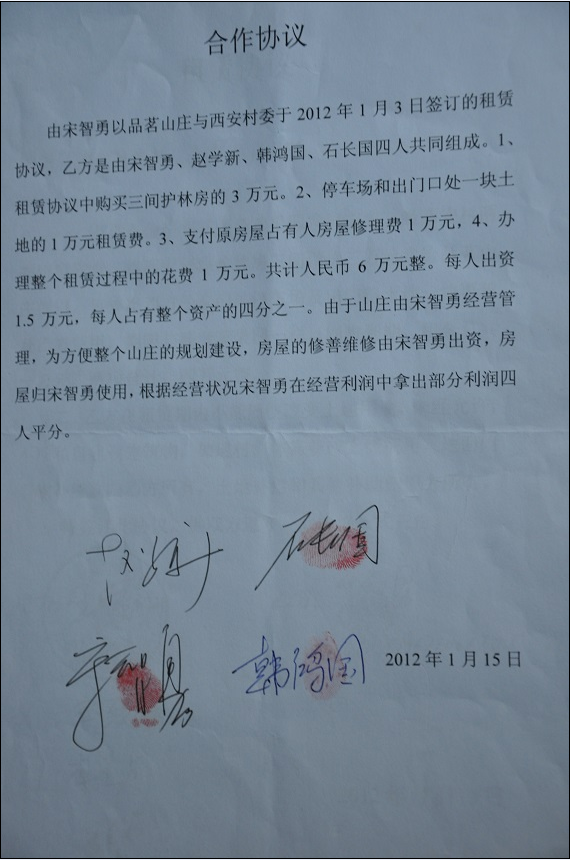 合作协议
由宋智勇以品茗山庄与西安村委于 2012 年 1 月 3 日签订的租赁
协议，乙方是由宋智勇、赵学新、韩鸿国、石长国四人共同组成。1、
租赁协议中购买三间护林房的 3 万元。2、停车场和出门口处一块土
地的 1 万元租赁费。3、支付原房屋占有人房屋修理费 1 万元，4、办
理整个租赁过程中的花费 1 万元。共计人民币 6 万元整。每人出资
1.5 万元，每人占有整个资产的四分之一。由于山庄由宋智勇经营管
理，为方便整个山庄的规划建设，房屋的修善维修由宋智勇出资，房
屋归宋智勇使用，根据经营状况宋智勇在经营利润中拿出部分利润四
人平分。
石长国
韩鸿国 2012 年 1 月 15 日